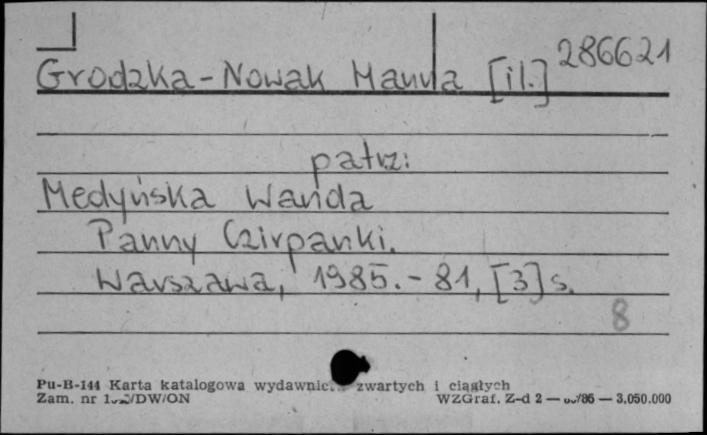 286621
Grodzka-Nowak Hanna [il.]
patrz:
Medyńska Wanda
Panny Czirpanki.
Warszawa, 1985. - 81, [3] s.
8
Pu-B-144 Karta katalogowa zwartych i ciągłych
Zam. nr /DW/ON WZGraf. Z-d 2 — /86 — 3.050.000